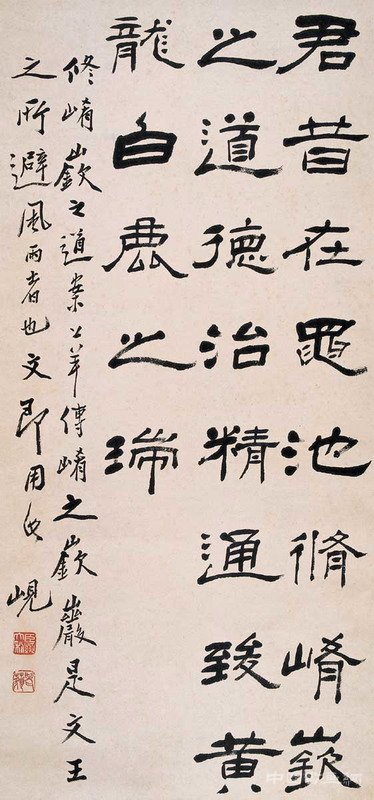 君昔在黽池脩崤嶔
之道德治精通致黄
龍白鹿之瑞
修崤嶔之道案公羊傳崤之嶔巖是文王
之所避風雨者也文即用此峴